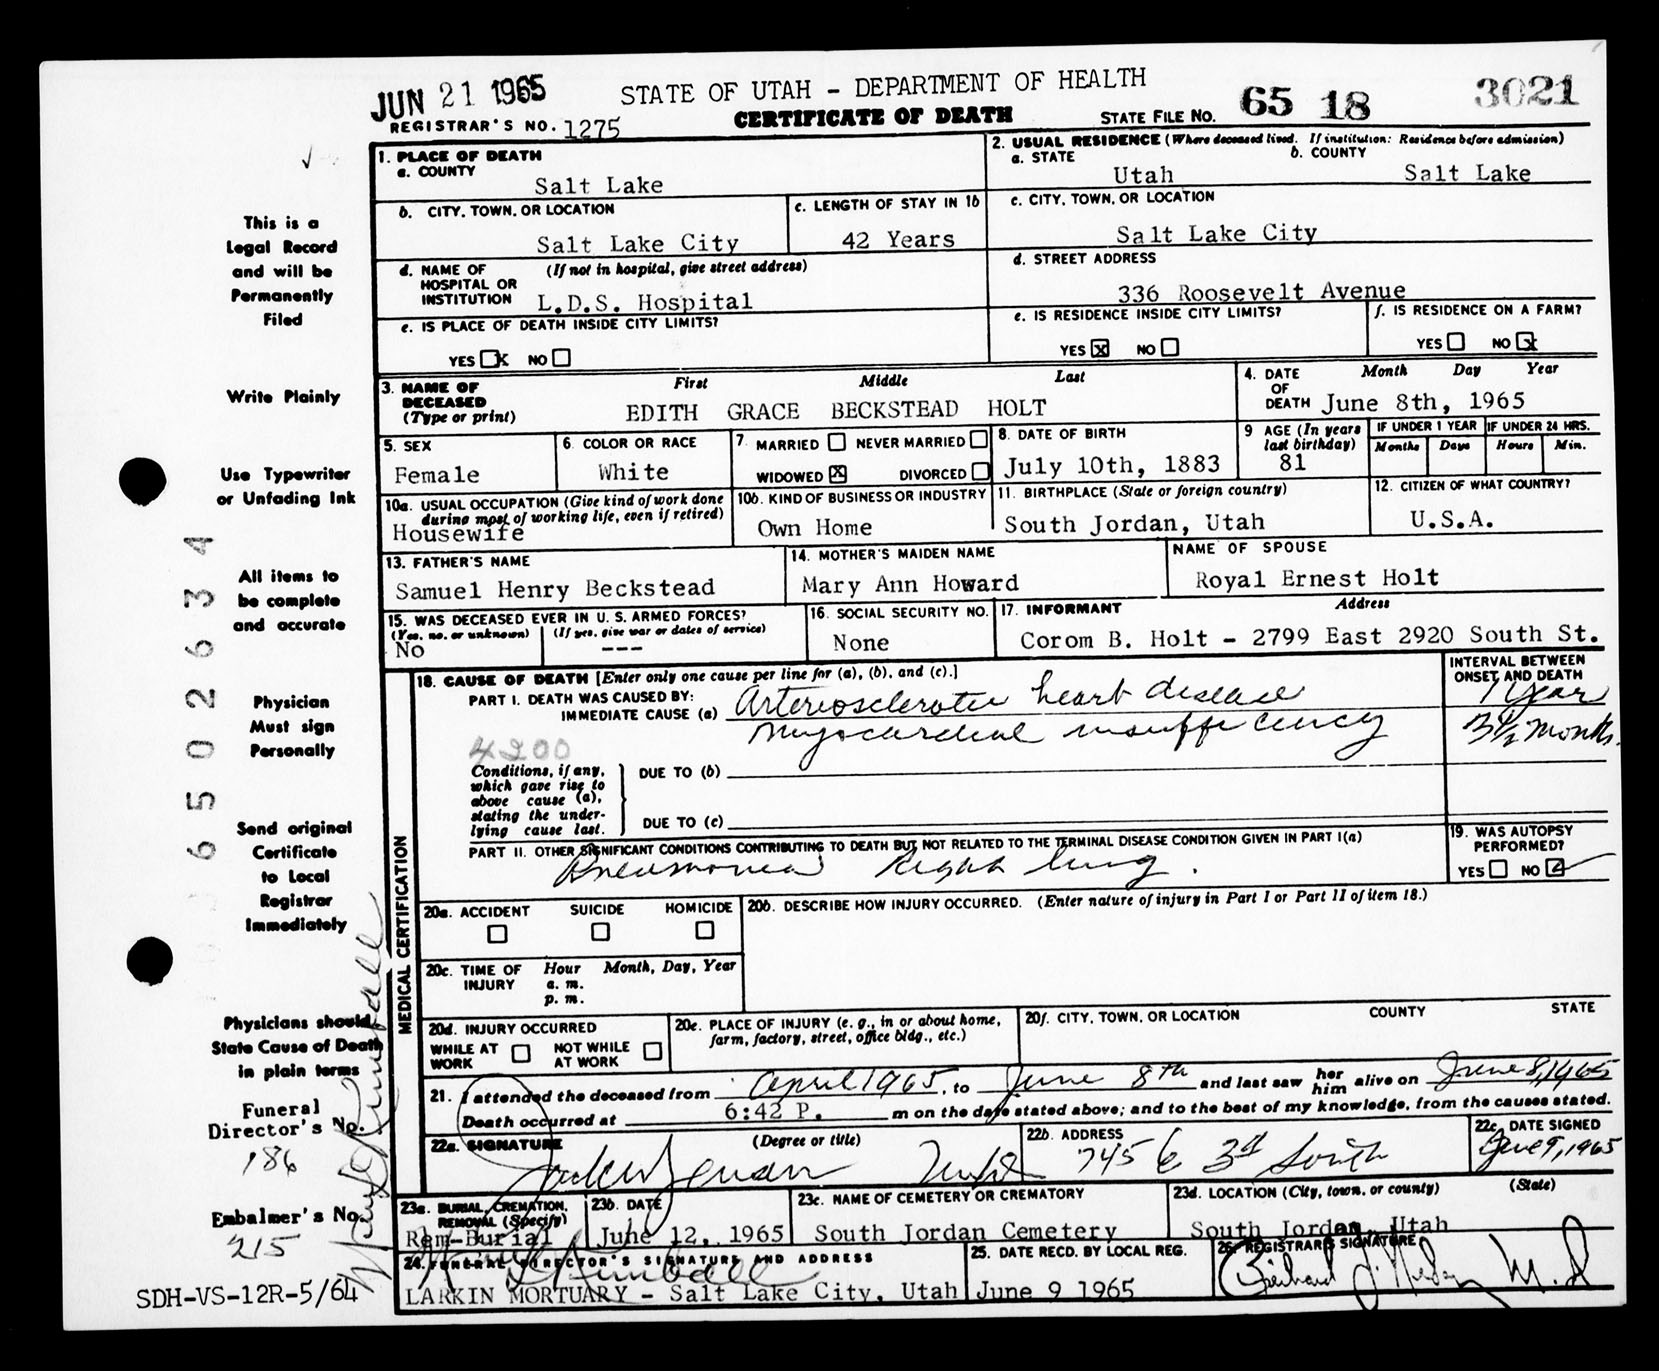 JUN 21 1965
STATE OF UTAH - DEPARTMENT OF HEALTH
CERTIFICATE OF DEATH
REGISTRAR'S NO. 1275
STATE FILE NO. 65 18 3021
This is a
Legal Record
and will be
Permanently
Filed
Write Plainly
Use Typewriter
or Unfading Ink
All items to
be complete
and accurate
Physician
Must sign
Personally
Send original
Certificate
to Local
Registrar
Immediately
Physicians should
State Cause of Death
in plain terms
Funeral
Director's No.
186
Embalmer's No.
215
SDH-VS-12R-5/64
6502634
1. PLACE OF DEATH
a. COUNTY
Salt Lake
2. USUAL RESIDENCE (Where deceased lived. If institution: Residence before admission)
a. STATE b. COUNTY
Utah Salt Lake
b. CITY, TOWN, OR LOCATION
Salt Lake City
c. LENGTH OF STAY IN 1b
42 Years
c. CITY, TOWN, OR LOCATION
Salt Lake City
d. NAME OF (If not in hospital, give street address)
HOSPITAL OR
INSTITUTION L.D.S. Hospital
d. STREET ADDRESS
336 Roosevelt Avenue
e. IS PLACE OF DEATH INSIDE CITY LIMITS?
YES X NO
e. IS RESIDENCE INSIDE CITY LIMITS?
YES X NO
f. IS RESIDENCE ON A FARM?
YES NO X
3. NAME OF
DECEASED
(Type or print)
First Middle Last
EDITH GRACE BECKSTEAD HOLT
4. DATE
OF
DEATH
Month Day Year
June 8th, 1965
5. SEX
Female
6. COLOR OR RACE
White
7. MARRIED NEVER MARRIED
WIDOWED X DIVORCED
8. DATE OF BIRTH
July 10th, 1883
9 AGE (In years
last birthday)
81
IF UNDER 1 YEAR
Months Days
IF UNDER 24 HRS.
Hours Min.
10a. USUAL OCCUPATION (Give kind of work done
during most of working life, even if retired)
Housewife
10b. KIND OF BUSINESS OR INDUSTRY
Own Home
11. BIRTHPLACE (State or foreign country)
South Jordan, Utah
12. CITIZEN OF WHAT COUNTRY?
U.S.A.
13. FATHER'S NAME
Samuel Henry Beckstead
14. MOTHER'S MAIDEN NAME
Mary Ann Howard
NAME OF SPOUSE
Royal Ernest Holt
15. WAS DECEASED EVER IN U.S. ARMED FORCES?
(Yes, no, or unknown) (If yes, give war or dates of service)
No ---
16. SOCIAL SECURITY NO.
None
17. INFORMANT Address
Corom B. Holt - 2799 East 2920 South St.
MEDICAL CERTIFICATION
18. CAUSE OF DEATH [Enter only one cause per line for (a), (b), and (c).]
PART I. DEATH WAS CAUSED BY:
IMMEDIATE CAUSE (a) Arteriosclerotic heart disease
Myocardial insufficiency
INTERVAL BETWEEN
ONSET AND DEATH
1 year
3 1/2 months.
4200
Conditions, if any,
which gave rise to
above cause (a),
stating the under-
lying cause last.
DUE TO (b)
DUE TO (c)
PART II. OTHER SIGNIFICANT CONDITIONS CONTRIBUTING TO DEATH BUT NOT RELATED TO THE TERMINAL DISEASE CONDITION GIVEN IN PART I(a)
Pneumonia Right lung.
19. WAS AUTOPSY
PERFORMED?
YES NO
20a. ACCIDENT SUICIDE HOMICIDE
20b. DESCRIBE HOW INJURY OCCURRED. (Enter nature of injury in Part I or Part II of item 18.)
20c. TIME OF INJURY
Hour Month, Day, Year
a. m.
p. m.
20d. INJURY OCCURRED
WHILE AT WORK NOT WHILE AT WORK
20e. PLACE OF INJURY (e. g., in or about home,
farm, factory, street, office bldg., etc.)
20f. CITY, TOWN, OR LOCATION COUNTY STATE
21. I attended the deceased from April 1965, to June 8th and last saw her him alive on June 8, 1965
Death occurred at 6:42 P. m on the date stated above; and to the best of my knowledge, from the causes stated.
22a. SIGNATURE (Degree or title)
22b. ADDRESS
745 E 3rd South
22c. DATE SIGNED
June 9, 1965
23a. BURIAL, CREMATION,
REMOVAL (Specify)
Rem-Burial
23b. DATE
June 12, 1965
23c. NAME OF CEMETERY OR CREMATORY
South Jordan Cemetery
23d. LOCATION (City, town, or county) (State)
South Jordan, Utah
24. FUNERAL DIRECTOR'S SIGNATURE AND ADDRESS
LARKIN MORTUARY - Salt Lake City, Utah
25. DATE RECD. BY LOCAL REG.
June 9 1965
26. REGISTRAR'S SIGNATURE